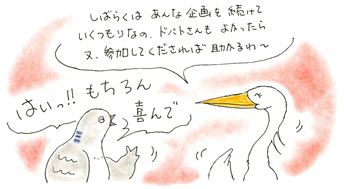 しばらくは あんな 企画 を 続けて
いくつもりなの。ドバトさんも よかったら
又、参加してくだされば 助かるわ〜
はいっ!! もちろん
喜んで